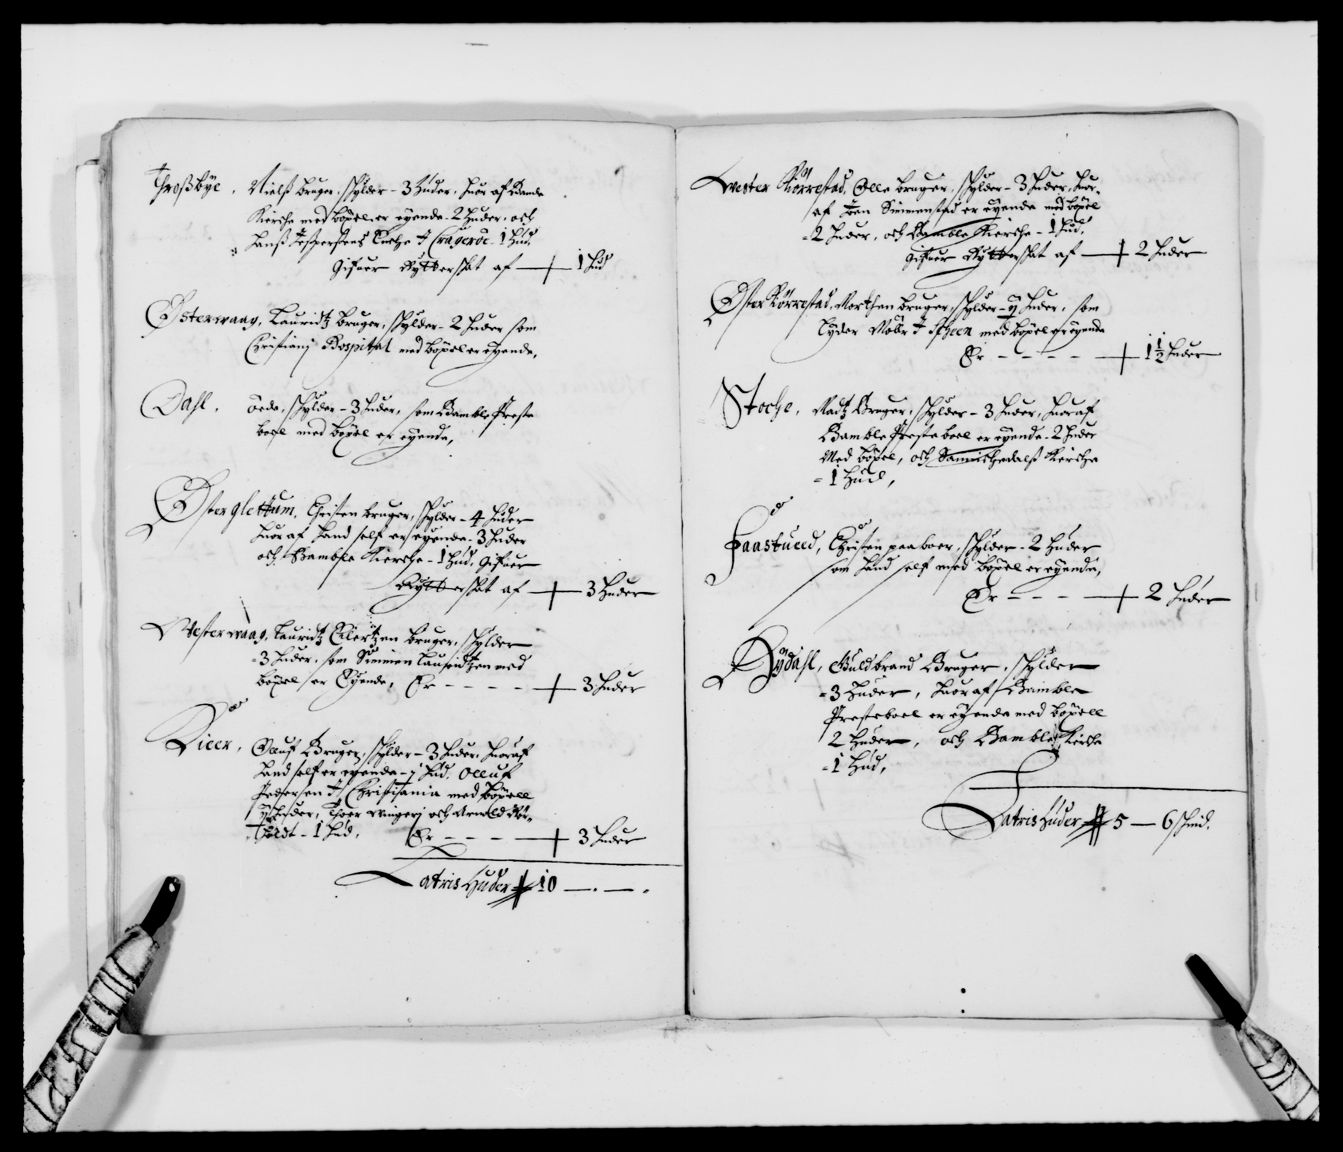 Throßbÿe, Nielß bruger, schÿlder - 3 Huder, huor af Bamle
Kierche med böxel er eÿende 2 Huder, och
Hanß Jespersens i Crageröe - 1 Hud,
Gifuer Rÿtterschat af — 1 Hud
Österwaag, Lauridtz bruger, schÿlder - 2 Huder som
Christianj Hospital med böxel er eÿende,
Dahl, öede, schÿlder - 3 Huder, som Bamble Preste
boel med böxel er eÿende,
Öster glettum, Christen bruger, schÿlder - 4 Huder
huor af hand self er eÿende - 3 Huder
och Bamble Kierche - 1 Hud, Gifuer
Rÿtterschat af — 3 Huder
Westerwaag, Lauridtz bruger, schÿlder
- 3 Huder, som Simmen Lauridtzen med
böxel er Eÿende, Er - - - - - 3 Huder
Oluf Bruger, schÿlder - 3 Huder, huor af
hand self er eÿende - 1 Hud, Olluf
Pedersen i Christiania med böxell
Huder, och Arnold
- 1 Hud, Er - - - - 3 Huder
Latris Huder 10 — . — .
Wester Körrestad, Olle bruger, schÿlder - 3 Huder, huor
af Joen Simmenstad er eÿende med böxel
- 2 Huder, och Bamble Kierche - 1 Hud,
Gifuer Rÿtterschat af — 2 Huder
Öster Körrestad, Morthen bruger, schÿlder - Huder, som
Mölr i Scheen med böxel er eÿende
Er - - - - - 1 1/2 Huder
Stoche, Madtz Bruger, schÿlder - 3 Huder, huor af
Bamble Preste boel er eÿende - 2 Huder
Med böxel, och Sannichedalß Kierche
- 1 Hud,
Faastued, Christen paaboer, schÿlder - 2 Huder
som hand self med böxel er eÿende,
Er - - - - 2 Huder
Dÿdahl, Guldbrand Bruger, schÿlder
- 3 Huder, huor af Bamble
Presteboel er eÿende med böxell
2 Huder, och Bamble Kirche
- 1 Hud,
Latris Huder 5 — 6 schind.